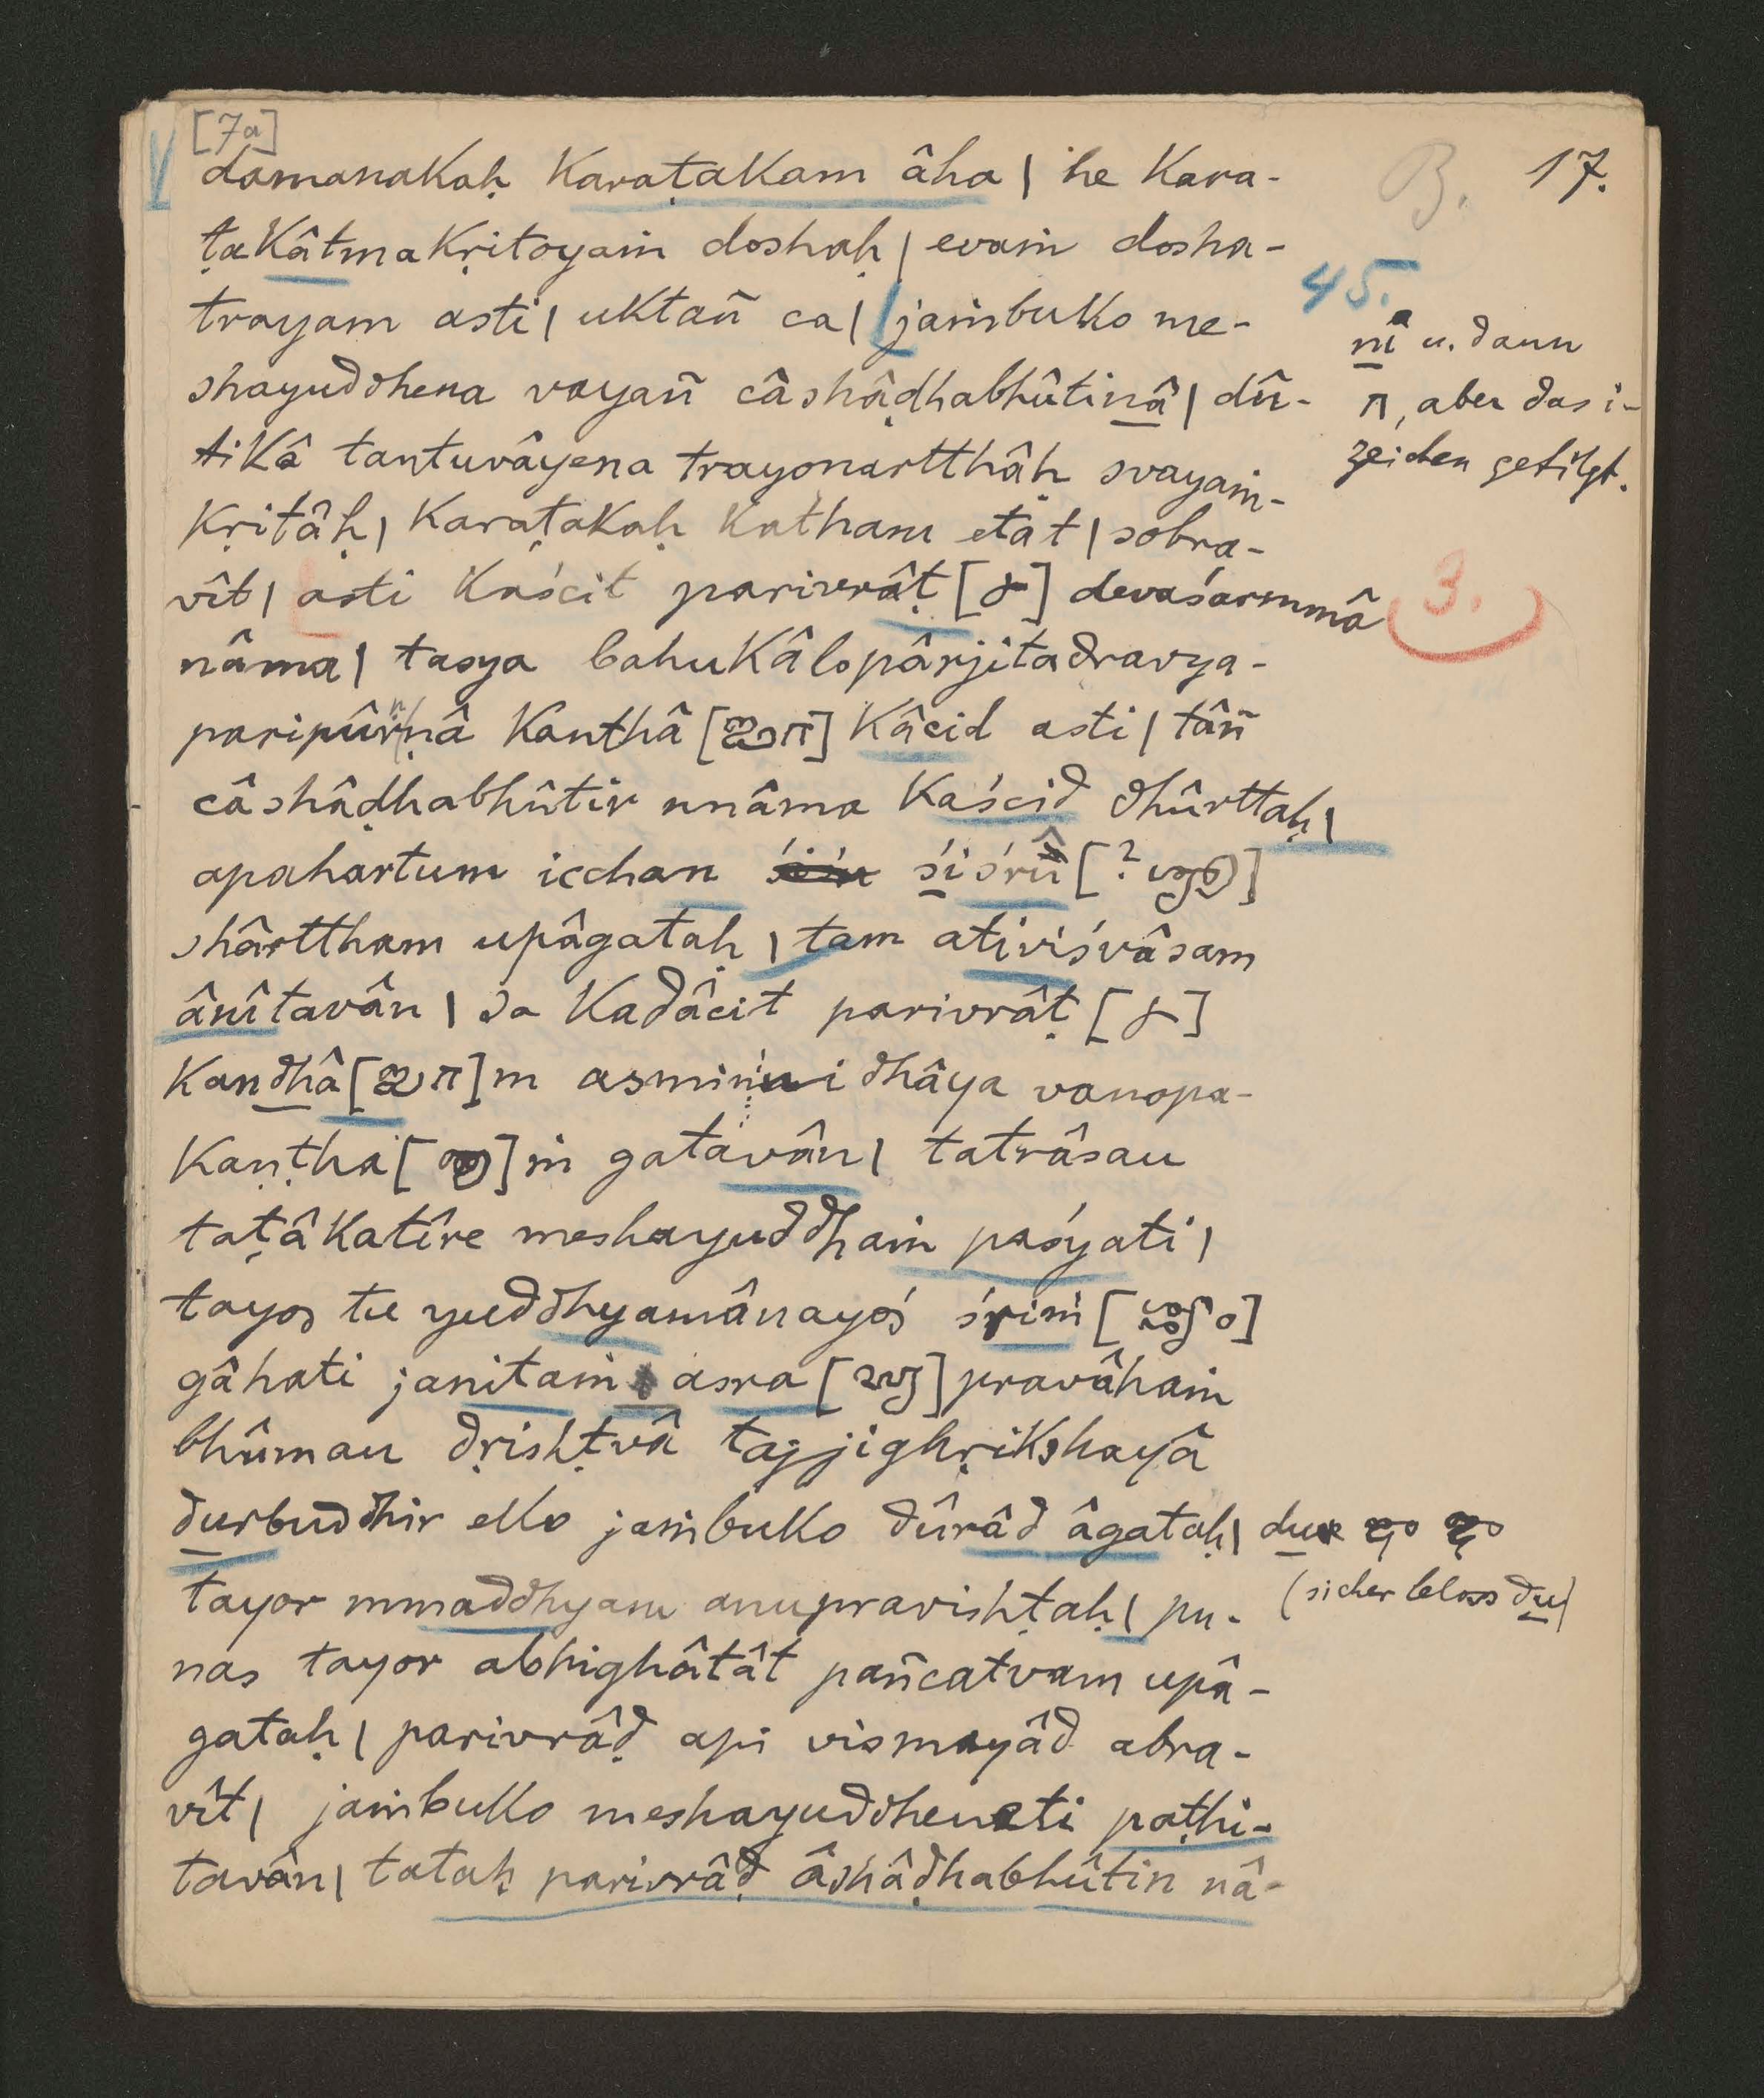 [7a]
B. 17.
damanakaḥ karaṭakam âha | he kara-
ṭakâtmakṛitoyaṁ doshaḥ | evaṁ dosha-
trayam asti | uktañ ca | jaṁbuko me-
45.
shayuddhena vayañ câshâḍhabhûtinâ | dû-
nî u. dann
π, aber das i-
zeichen getilgt.
tikâ tantuvâyena trayonartthâḥ svayaṁ-
kṛitâḥ | karaṭakaḥ katham etat | sobra-
vît | asti kaścit parivrâṭ [] devaśarmmâ
3.
nâma | tasya bahukâlopârjitadravya-
paripûrṇṇâ kanthâ [] kâcid asti | tâñ
câshâḍhabhûtir nnâma kaścid dhûrttaḥ |
apahartum icchan śiśrû [?]
shârttham upâgataḥ | tam ativiśvâsam
ânîtavân | sa kadâcit parivrâṭ []
kandhâ []m asmin nidhâya vanopa-
kaṇṭha []ṁ gatavân | tatrâsau
taṭâkatîre meshayuddhaṁ paśyati |
tayos tu yuddhyamânayoś śriṁ []
gâhati janitaṁ asra [] pravâhaṁ
bhûmau dṛishṭvâ tajjighṛikshayâ
durbuddhir eko jaṁbuko dûrâd âgataḥ | du
(sicher bloss du)
tayor mmaddhyam anupravishṭaḥ | pu-
nas tayor abhighâtât pañcatvam upâ-
gataḥ | parivrâḍ api vismayâd abra-
vît | jaṁbuko meshayuddheneti paṭhi-
tavân | tataḥ parivrâḍ âshâḍhabhûtin nâ-